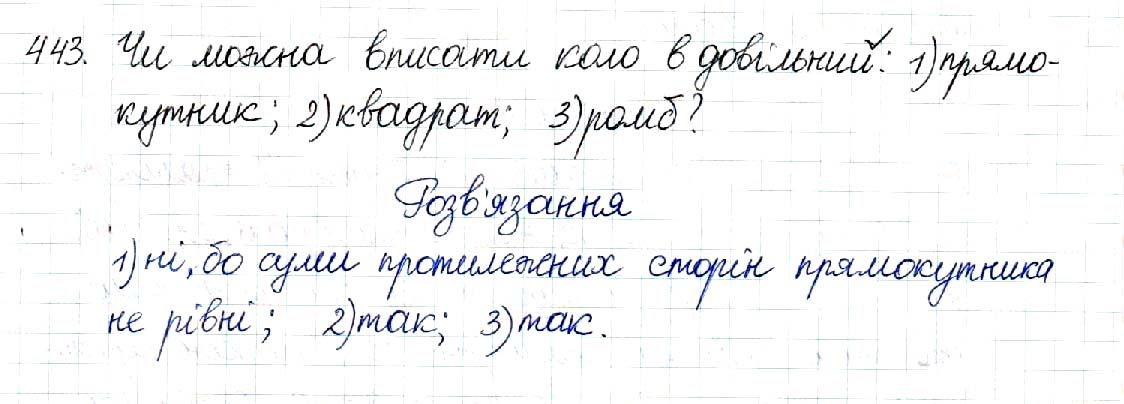 443. Чи можна вписати коло в довільний: 1) прямо-
кутник; 2) квадрат; 3) ромб?
Розв'язання
1) ні, бо суми протилежних сторін прямокутника
не рівні; 2) так; 3) так.